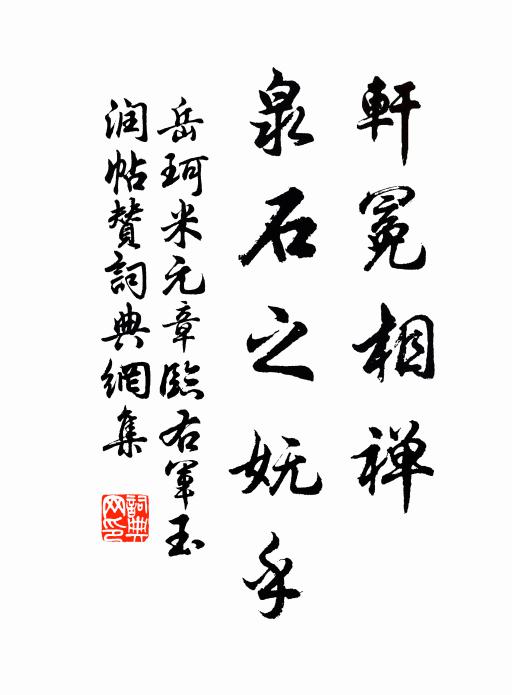 軒冕相禅
泉石之妩乎
岳珂米元章臨右軍玉
润帖赞詞典網集
詞典
网印